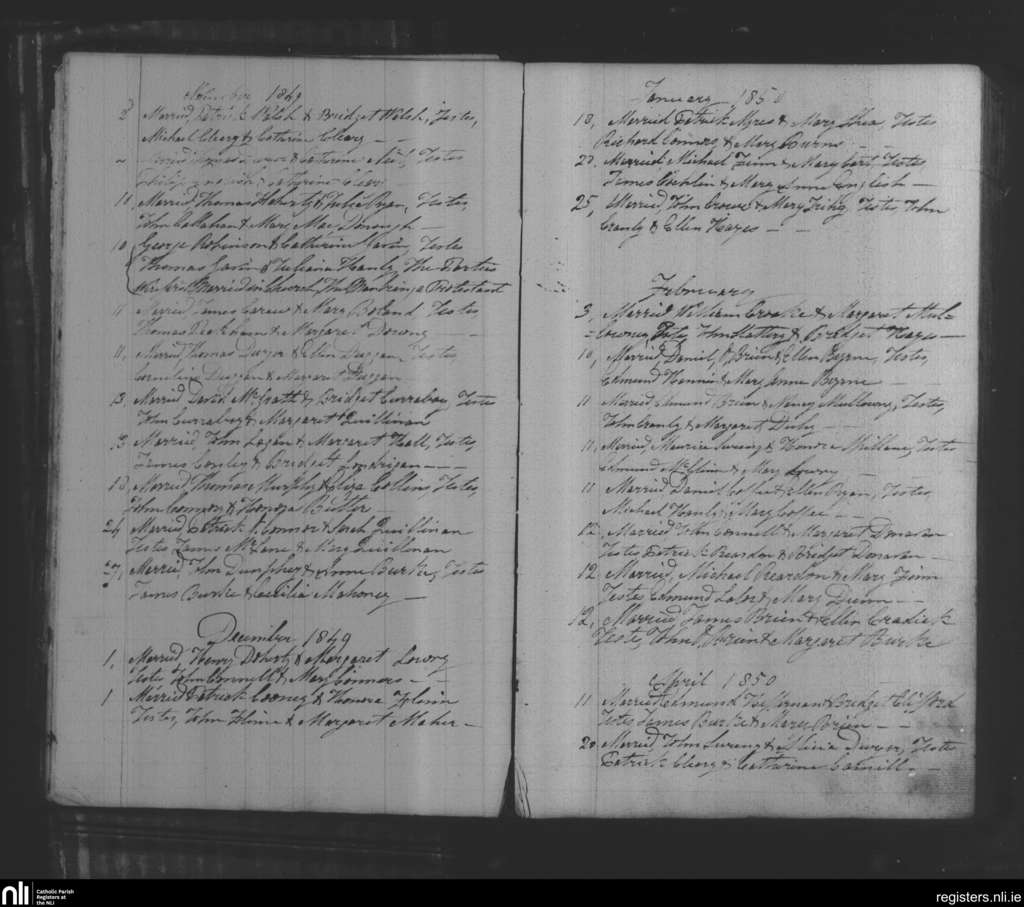 November 1849
2 Married, Patrick Welsh & Bridget Welsh, Testes,
Michael Cleary & Cathrine Cleary
Married Thomas & Catherine Testes
Philip Catherine Cleary
10 Married Thomas & Julia Ryan, Testes,
John Callahan & Mary Mac Donough
10 George Robinson & Catherine Gavin, Testes
Thomas Gavin & Juliana Hanly, The Parties
were first Married in Church, the Man being a Protestant
11 Married James Carew & Mary Boland Testes
Thomas & Margaret
11, Married Thomas Dwyer & Ellen Duggan, Testes,
Cornelius Duggan & Margaret Duggan
13 Married David McGrath & Bridget Curraboy, Testes
John Curraboy & Margaret Quillinan
13 Married, John Logan & Margaret Hall, Testes,
James Conley & Bridget Londrigan
13 Married Thomas Murphy & Eliza Collins Testes,
John Compton & Honora Butler
24 Married, Patrick Connor & Sarah Quillinan
Testes James & Mary Quillinan
27, Married, John Dunphy & Anne Burke, Testes
James Burke & Cecilia Mahoney
December 1849
1, Married, Henry Doherty & Margaret Lowry
Testes John Connell & Mary Connors
1 Married Patrick Cooney & Honora Glenin
Testes, John Glenin & Margaret Maher
January 1850
18, Married Patrick Myres & Mary Shea, Testes
Richard Connors, & Mary Burns
20. Married Michael Finn & Mary Testes,
James Coghlin & Mary Anne English
25, Married, John Crowe & Mary Testes John
Cranly & Ellen Hayes
February
3, Married William Croake & Margaret Mul-
=lowney, Testes, John Slattery & Bridget Hayes
10, Married Daniel, O Brien & Ellen Byrne, Testes,
Edmund & Mary Anne Byrne
11 Married Edmund Brien & Nancy Mullowny, Testes,
John Cranly & Margaret
11, Married, Maurice & Honora Mullany, Testes
Edmund & Mary Lowry
11 Married Daniel & Ellen Ryan, Testes,
Michael Hanly, & Mary
12, Married John Connell & Margaret Donavan
Testes Patrick Reardon & Bridget Donavan
12 Married, Michael Reardon & Mary Finn
Testes Edmund Lalor & Mary Dunn
12, Married James Brien & Ellen Cradick
Testes, John Brien & Margaret Burke
April 1850
11 Married Edmund Heffernan & Bridget Clifford
Testes James Burke & Mary Brien
20 Married, John & Alicia Dwyer, Testes
Patrick Cleary & Catharine
nli
Catholic Parish
Registers at
the NLI
registers.nli.ie